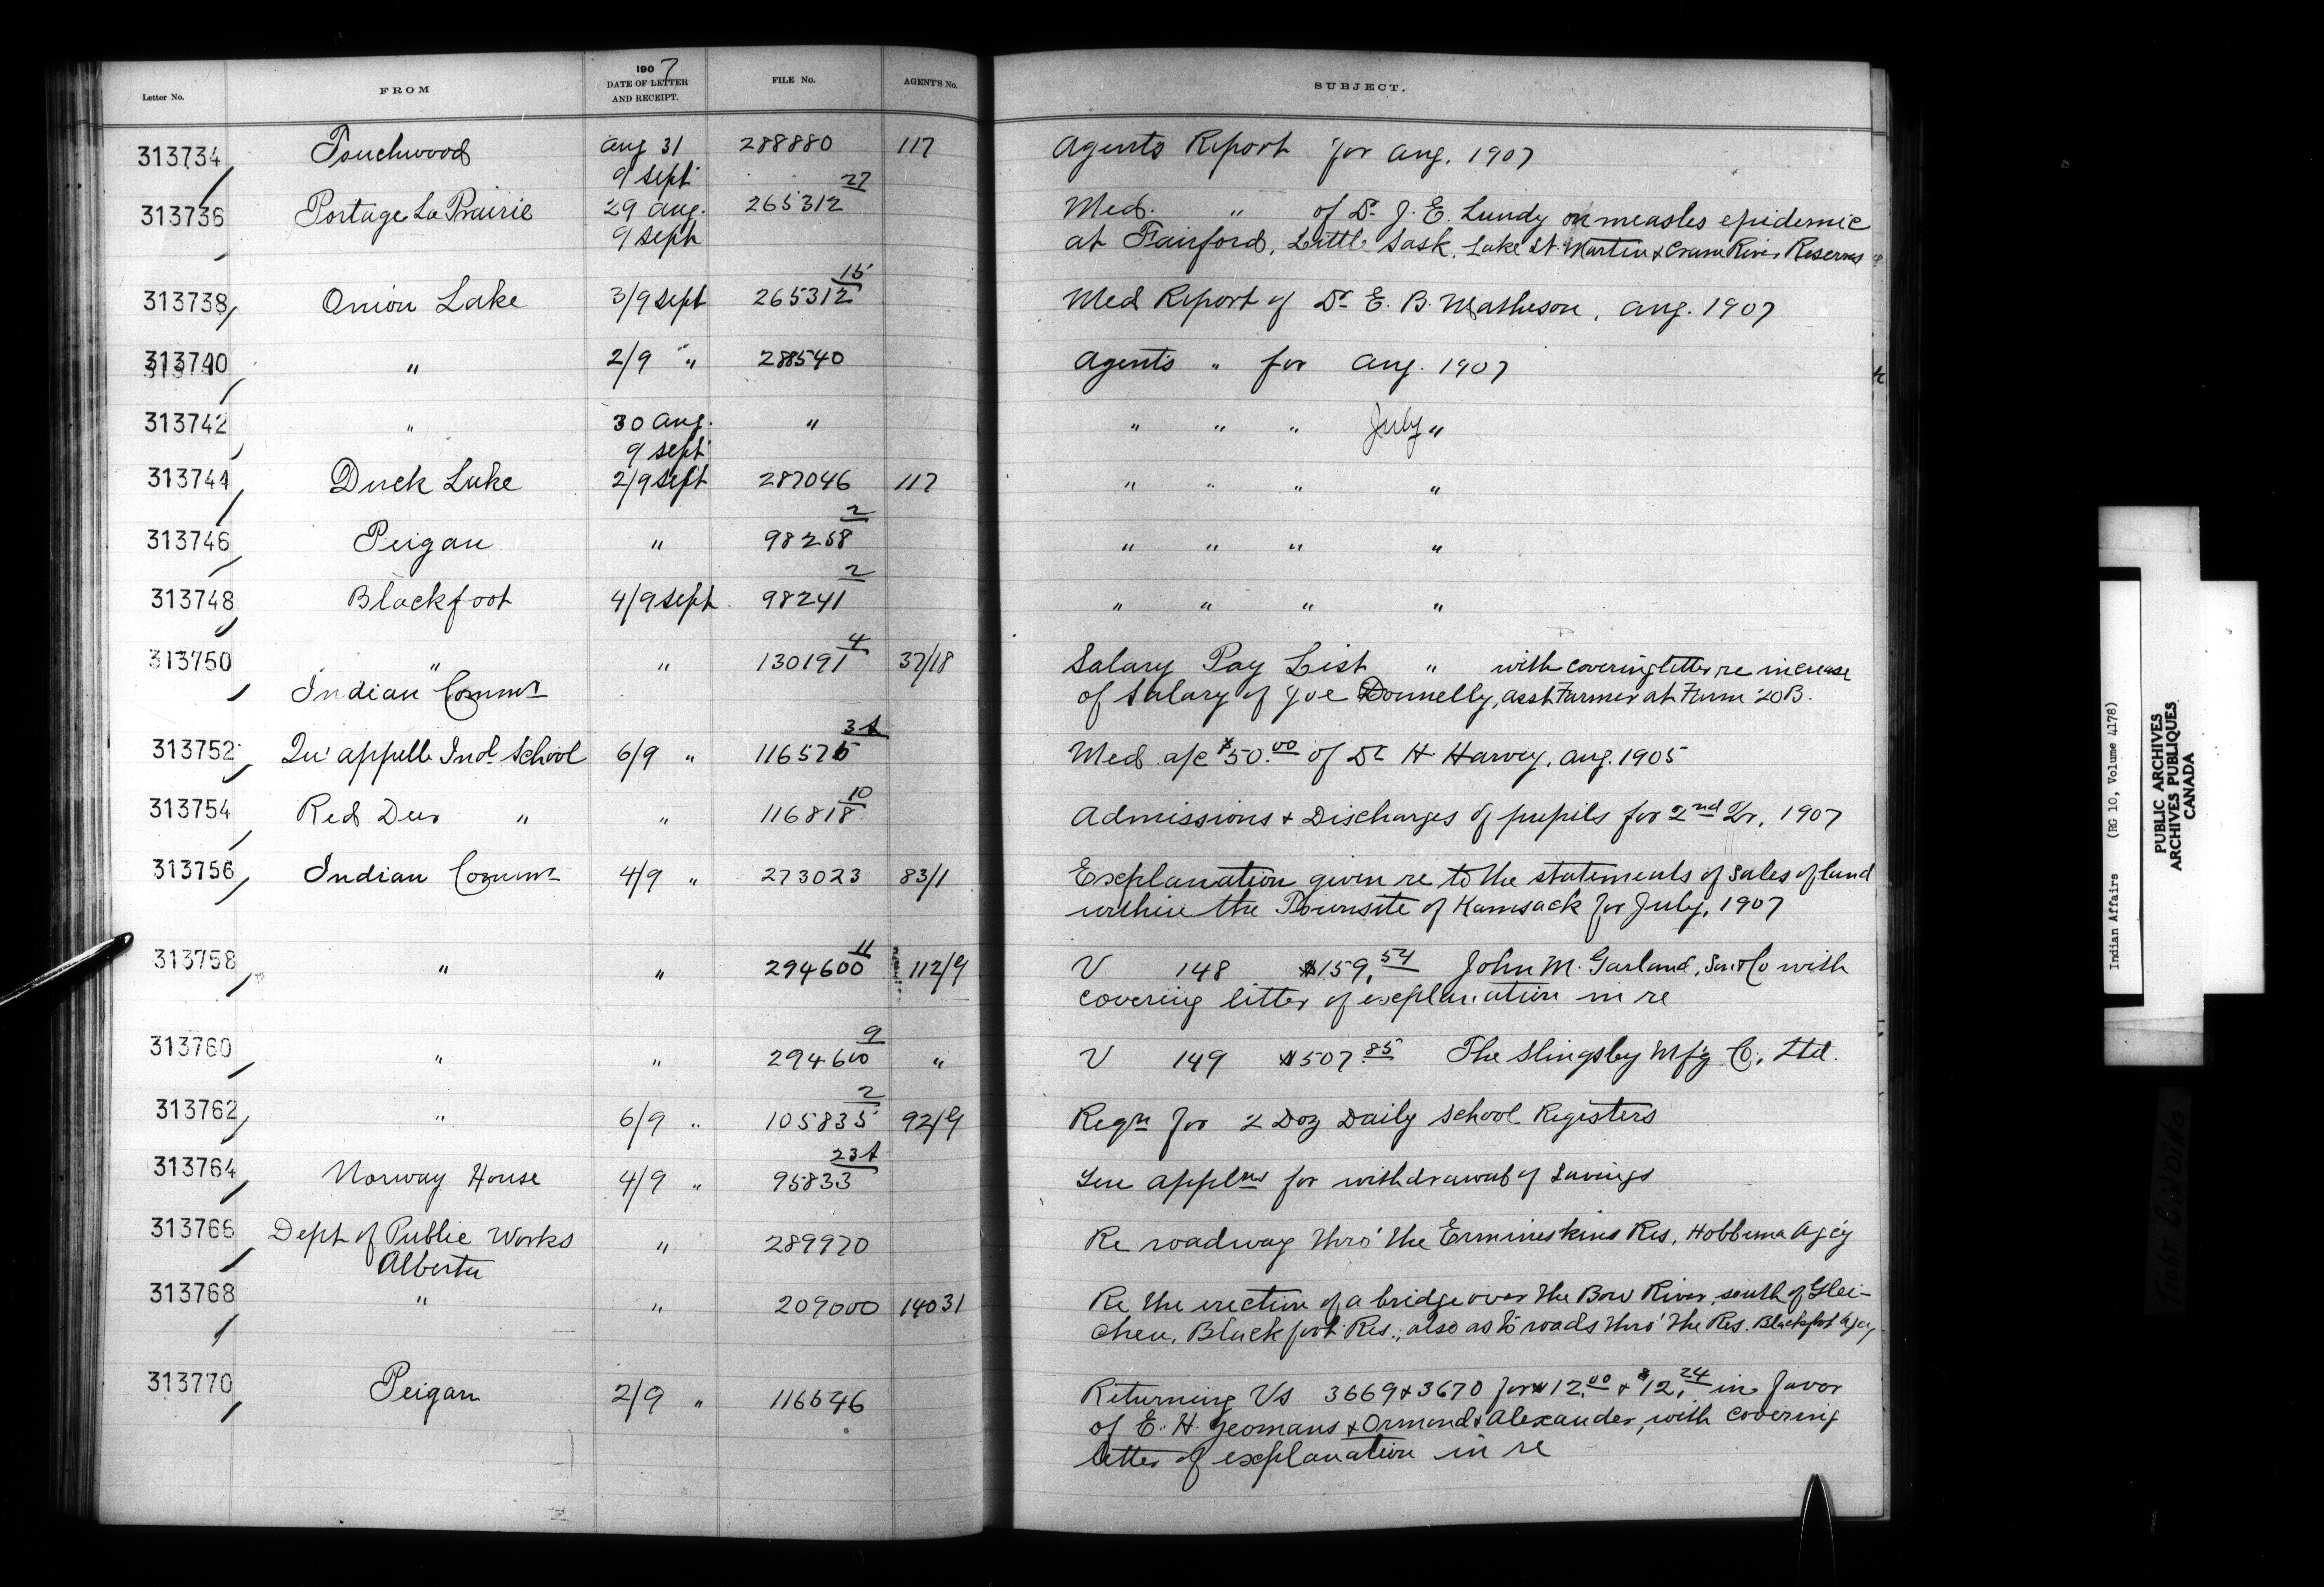 Letter No. FROM 1907 DATE OF LETTER AND RECEIPT. FILE No. AGENT'S No. SUBJECT.
313734 Touchwood Aug 31 288880 117 Agents Report for Aug. 1907
9 Sept
313736 Portage La Prairie 29 Aug. 265312 27 Med. " of Dr J. E. Lundy on measles epidemic
9 Sept at Fairford, Little Sask, Lake St. Martin & Crane River Reserves
313738 Onion Lake 3/9 Sept 265312 15 Med Report of Dr E. B. Matheson, Aug. 1907
313740 " 2/9 " 288540 Agents " for Aug. 1907
313742 " 30 Aug. " " " " July "
9 Sept
313744 Duck Lake 2/9 Sept 287046 117 " " " "
313746 Peigan " 98258 2 " " " "
313748 Blackfoot 4/9 Sept 98241 2 " " " "
313750 " " 130191 4 37/18 Salary Pay List " with covering letter re increase
Indian Commr of Salary of Joe Donnelly, asst Farmer at Farm 20B.
313752 Qu'appelle Indl School 6/9 " 116575 3A Med a/c $50.00 of Dr H Harvey, Aug. 1905
313754 Red Deer " " 116818 10 Admissions & Discharges of pupils for 2nd Qr, 1907
313756 Indian Commr 4/9 " 273023 83/1 Explanation given re to the statements of sales of land
within the Townsite of Kamsack for July, 1907
313758 " " 294600 11 112/9 V 148 $159.54 John M. Garland, Son & Co with
covering letter of explanation in re
313760 " " 294600 9 " V 149 $507.85 The Slingsby Mf'g Co, Ltd.
313762 " 6/9 " 105835 2 92/9 Reqn for 2 Doz Daily School Registers
313764 Norway House 4/9 " 95833 23A Ten applns for withdrawal of Savings
313766 Dept of Public Works " 289970 Re roadway thro' the Ermineskins Res, Hobbema Agcy
Alberta
313768 " " 209000 14031 Re the erection of a bridge over the Bow River, south of Glei-
chen, Blackfoot Res.; also as to roads thro' the Res. Blackfoot Agcy
313770 Peigan 2/9 " 116646 Returning Vs 3669 & 3670 for $12.00 & $12.24 in favor
of E. H. Yeomans & Ormond & Alexander, with covering
letter of explanation in re
Indian Affairs (RG 10, Volume 4178)
PUBLIC ARCHIVES
ARCHIVES PUBLIQUES
CANADA
TIGHT BINDING